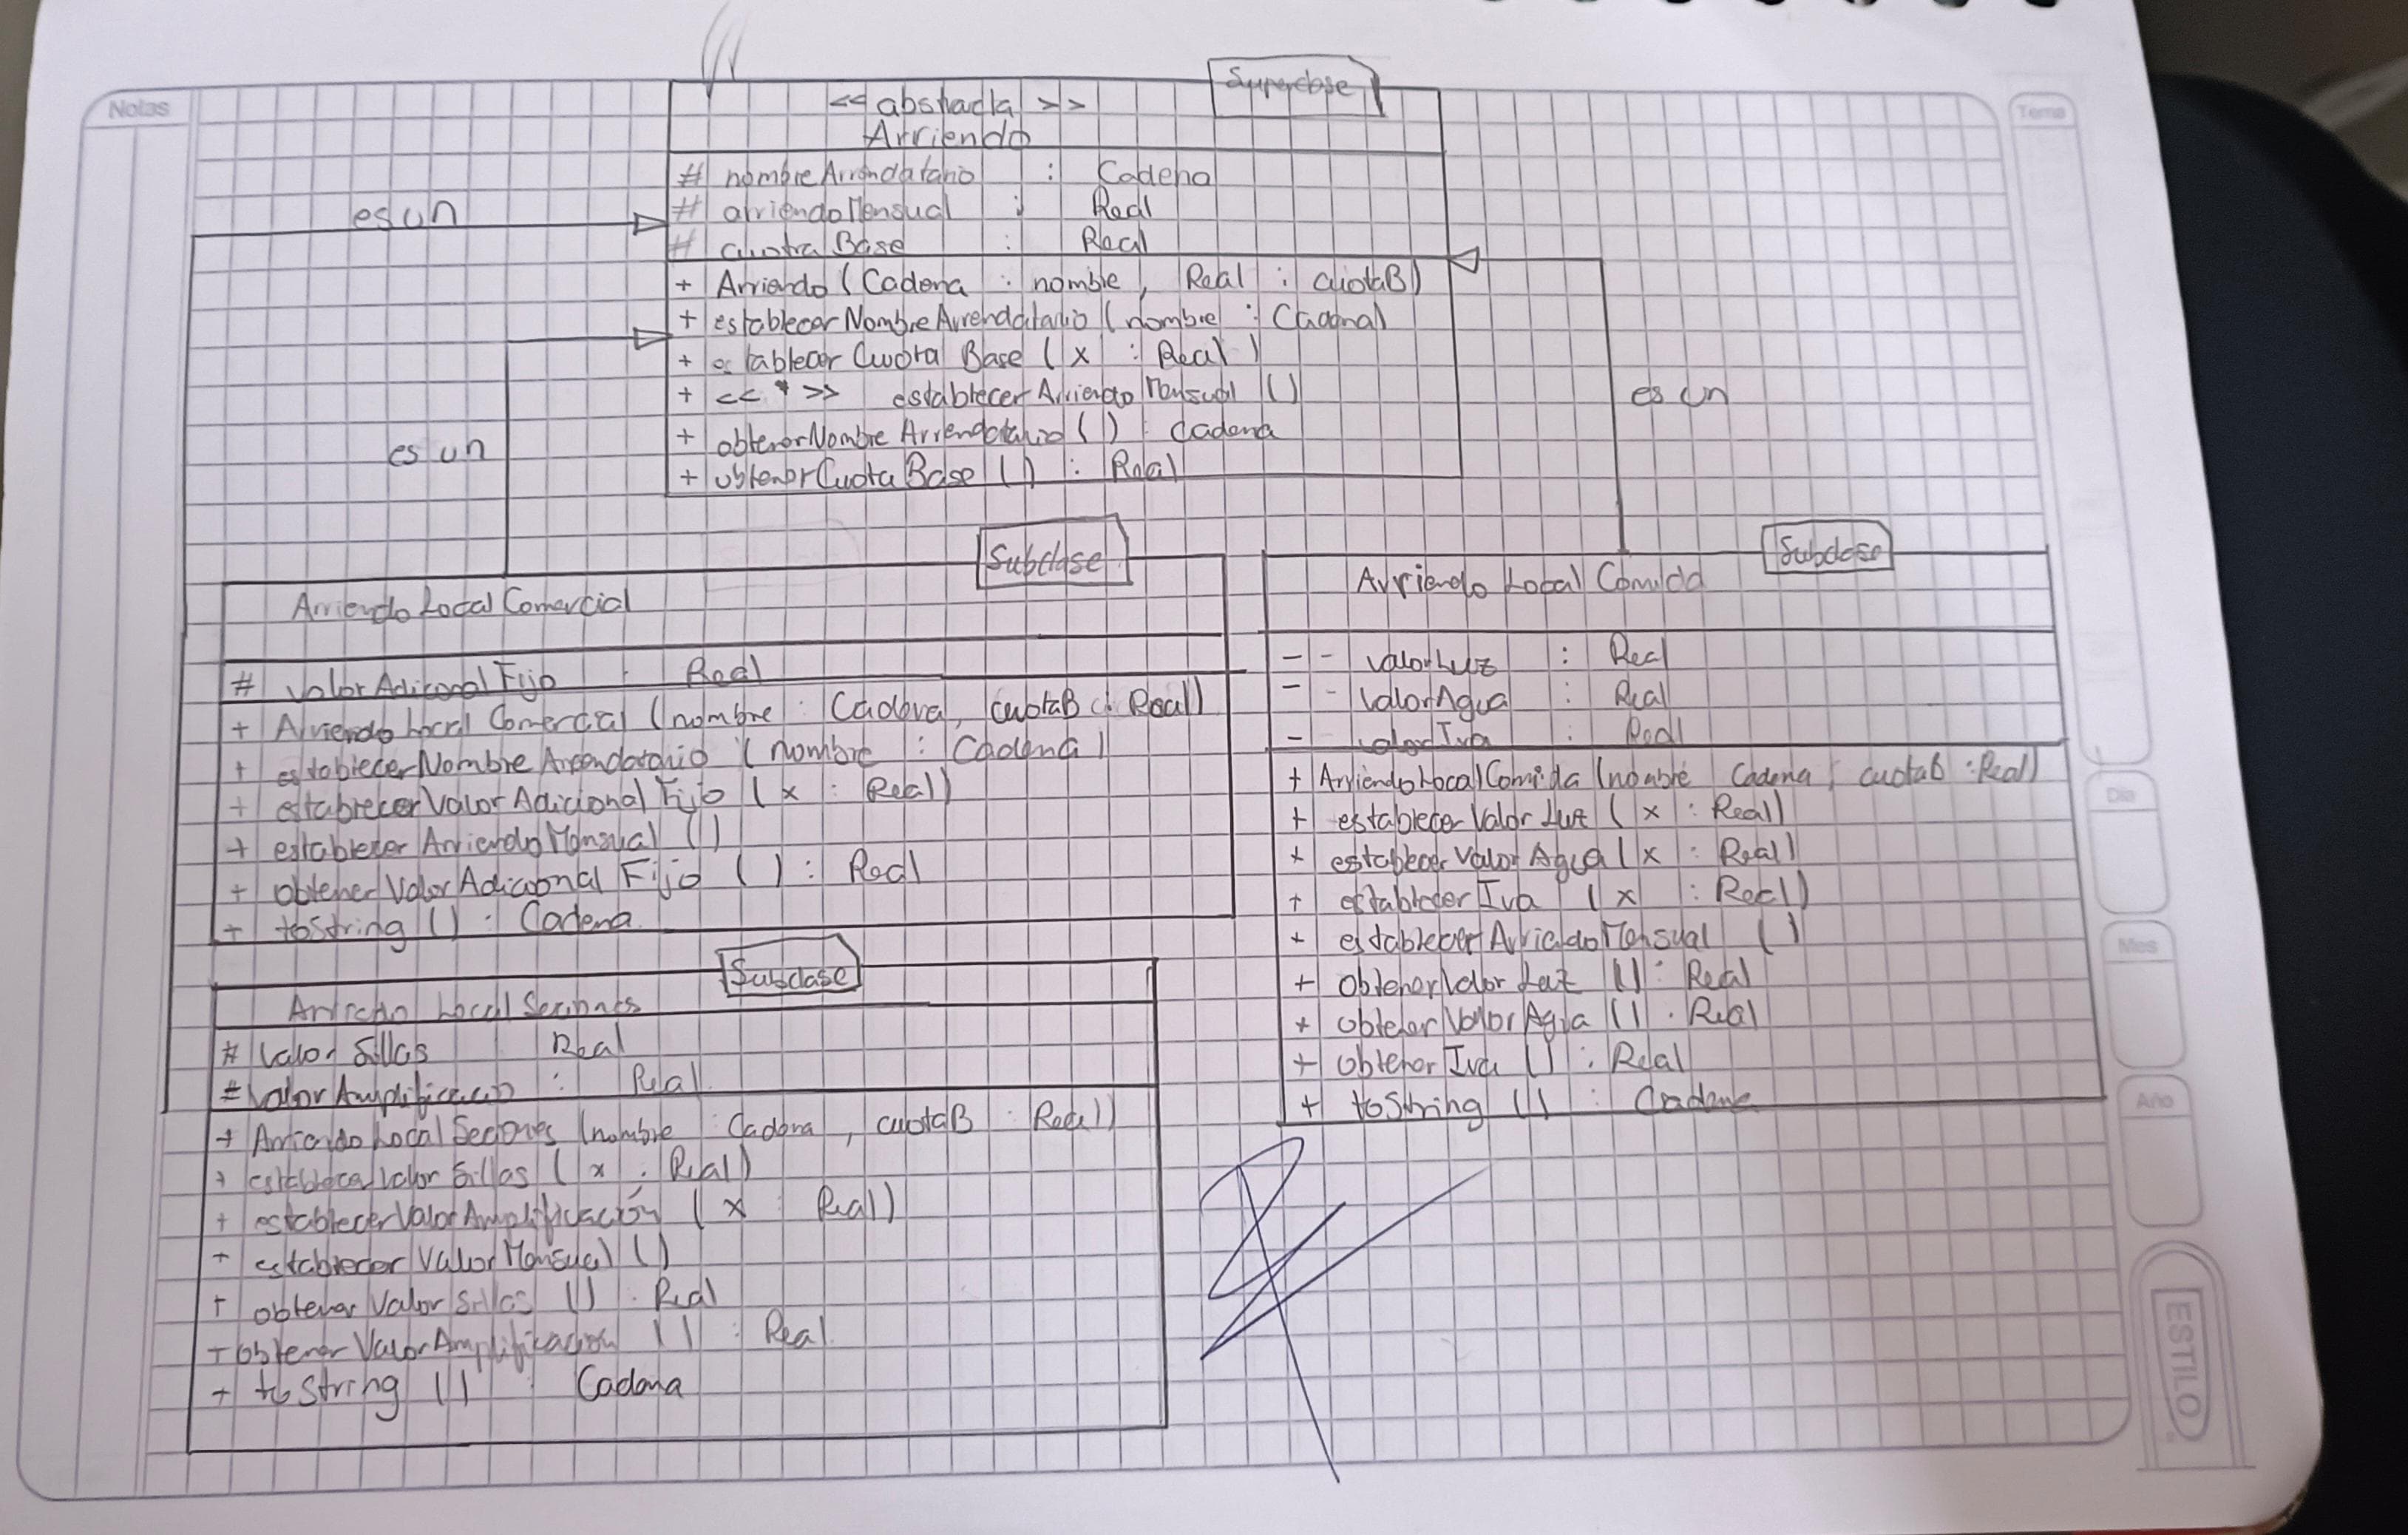 Notas
Tema
Superclase
<< abstracta >>
Arriendo
# nombreArrendatario : Cadena
# arriendoMensual : Real
# cuotaBase : Real
+ Arriendo (Cadena : nombre, Real : cuotaB)
+ establecerNombreArrendatario (nombre : Cadena)
+ establecer Cuota Base ( x : Real )
+ << * >> establecerArriendoMensual ()
+ obtenerNombre Arrendatario () : Cadena
+ obtenerCuota Base () : Real
es un
es un
es un
Subclase
Arriendo Local Comercial
# valorAdiconal Fijo : Real
+ Arriendo Local Comercial (nombre : Cadena, cuotaB : Real)
+ establecerNombreArrendatario (nombre : Cadena)
+ establecerValorAdicional Fijo ( x : Real)
+ establecer ArriendoMensual ()
+ obtenerValorAdicional Fijo ( ) : Real
+ toString () : Cadena
Subclase
Arriendo Local Comida
- - valorLuz : Real
- - valorAgua : Real
- valorIva : Real
+ ArriendoLocalComida (nombre Cadena, cuotaB : Real)
+ establecerValor Luz ( x : Real)
+ establecerValor Agua ( x : Real)
+ establecerIva ( x : Real)
+ establecerArriendoMensual ( )
+ obtenerValor Luz () : Real
+ obtenerValorAgua () : Real
+ obtenerIva () : Real
+ toString () : Cadena
Subclase
Arriendo Local Sesiones
# Valor Sillas Real
# ValorAmplificacion : Real
+ Arriendo Local Sesiones (nombre : Cadena, cuotaB : Real)
+ establecerValor Sillas ( x : Real)
+ establecerValorAmplificación ( x : Real)
+ establecer ValorMensual ()
+ obtener Valor Sillas () : Real
+ obtener ValorAmplificacion () : Real
+ toString () : Cadena
Dia
Mes
Año
ESTILO